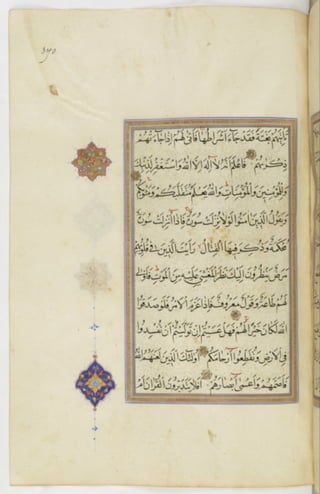 ٣٧٥
تأتيهم بغتة فقد جاء أشراطها فأنى لهم إذا جاءتهم
ذكريهم فاعلم أنه لا إله إلا الله واستغفر لذنبك
وللمؤمنين والمؤمنات والله يعلم متقلبكم ومثويكم
ويقول الذين آمنوا لولا نزلت سورة فإذا أنزلت سورة
محكمة وذكر فيها القتال رأيت الذين في قلوبهم
مرض ينظرون إليك نظر المغشي عليه من الموت فأولى
لهم طاعة وقول معروف فإذا عزم الأمر فلو صدقوا
الله لكان خيرا لهم فهل عسيتم إن توليتم أن تفسدوا
في الأرض وتقطعوا أرحامكم أولئك الذين لعنهم الله
فأصمهم وأعمى أبصارهم أفلا يتدبرون القرآن أم